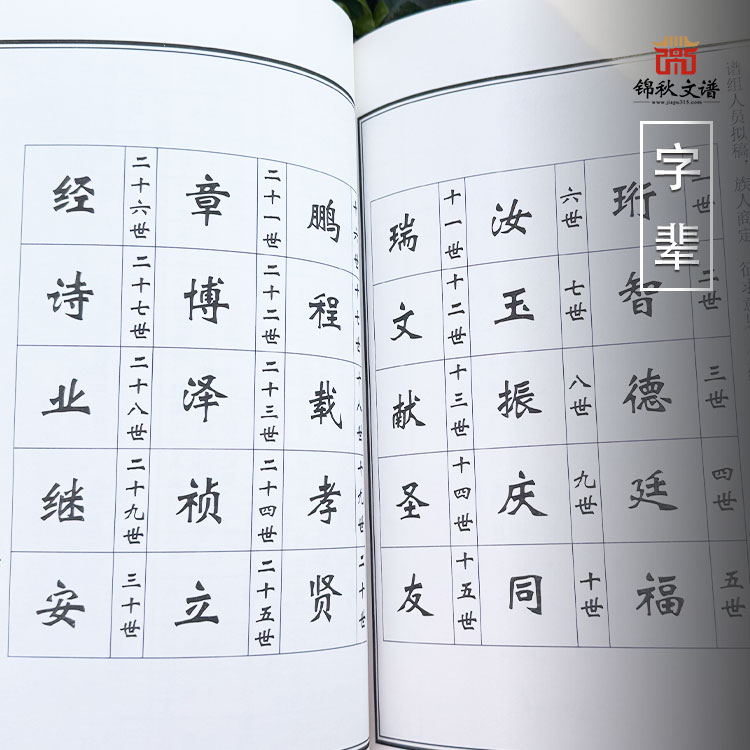 锦秋文谱
www.jiapu315.com
字辈
谱组人员拟稿 族人商定
一世 二世 三世 四世 五世
珩 智 德 廷 福
六世 七世 八世 九世 十世
汝 玉 振 庆 同
十一世 十二世 十三世 十四世 十五世
瑞 文 献 圣 友
十六世 十七世 十八世 十九世 二十世
鹏 程 载 孝 贤
二十一世 二十二世 二十三世 二十四世 二十五世
章 博 泽 祯 立
二十六世 二十七世 二十八世 二十九世 三十世
经 诗 业 继 安